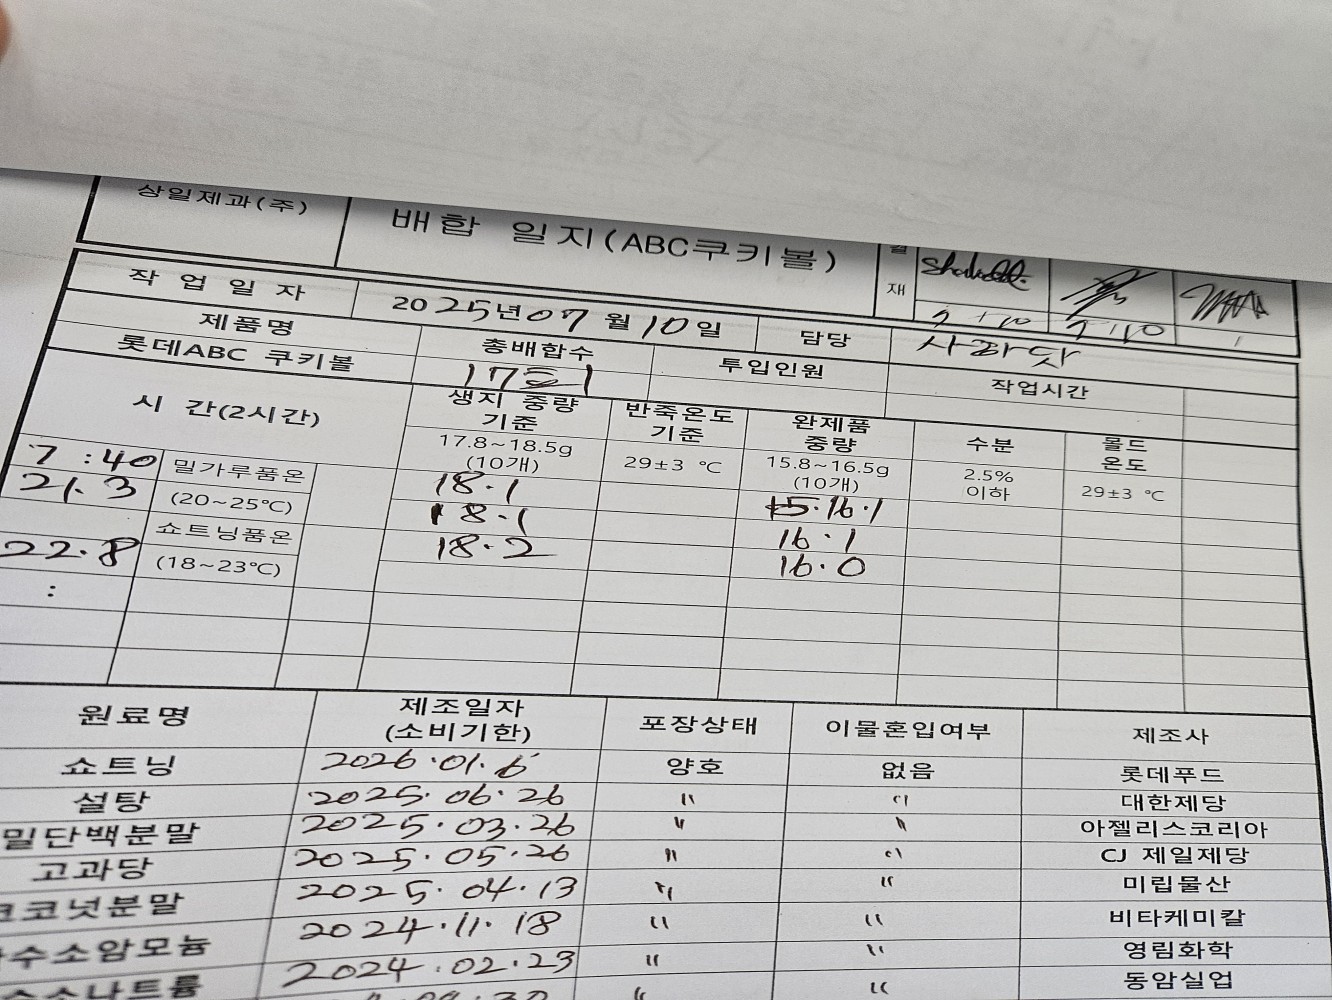 상일제과(주) 배합 일지(ABC쿠키볼) 재
작업일자 2025년 07월 10일 담당
제품명 총배합수 투입인원 작업시간
롯데ABC 쿠키볼 17
시 간(2시간) 생지 중량 기준 반죽온도 기준 완제품 중량 수분 몰드 온도
17.8~18.5g (10개) 29±3 ℃ 15.8~16.5g (10개) 2.5% 이하 29±3 ℃
7:40 밀가루품온 18.1 16.1
21.3 (20~25℃) 18.1 16.1
쇼트닝품온 18.2 16.0
22.8 (18~23℃)
:
원료명 제조일자 (소비기한) 포장상태 이물혼입여부 제조사
쇼트닝 2026.01.6 양호 없음 롯데푸드
설탕 2025.06.26 〃 〃 대한제당
밀단백분말 2025.03.26 〃 〃 아젤리스코리아
고과당 2025.05.26 〃 〃 CJ 제일제당
코코넛분말 2025.04.13 〃 〃 미립물산
수소암모늄 2024.11.18 〃 〃 비타케미칼
수소나트륨 2024.02.23 〃 〃 영림화학
〃 〃 동암실업